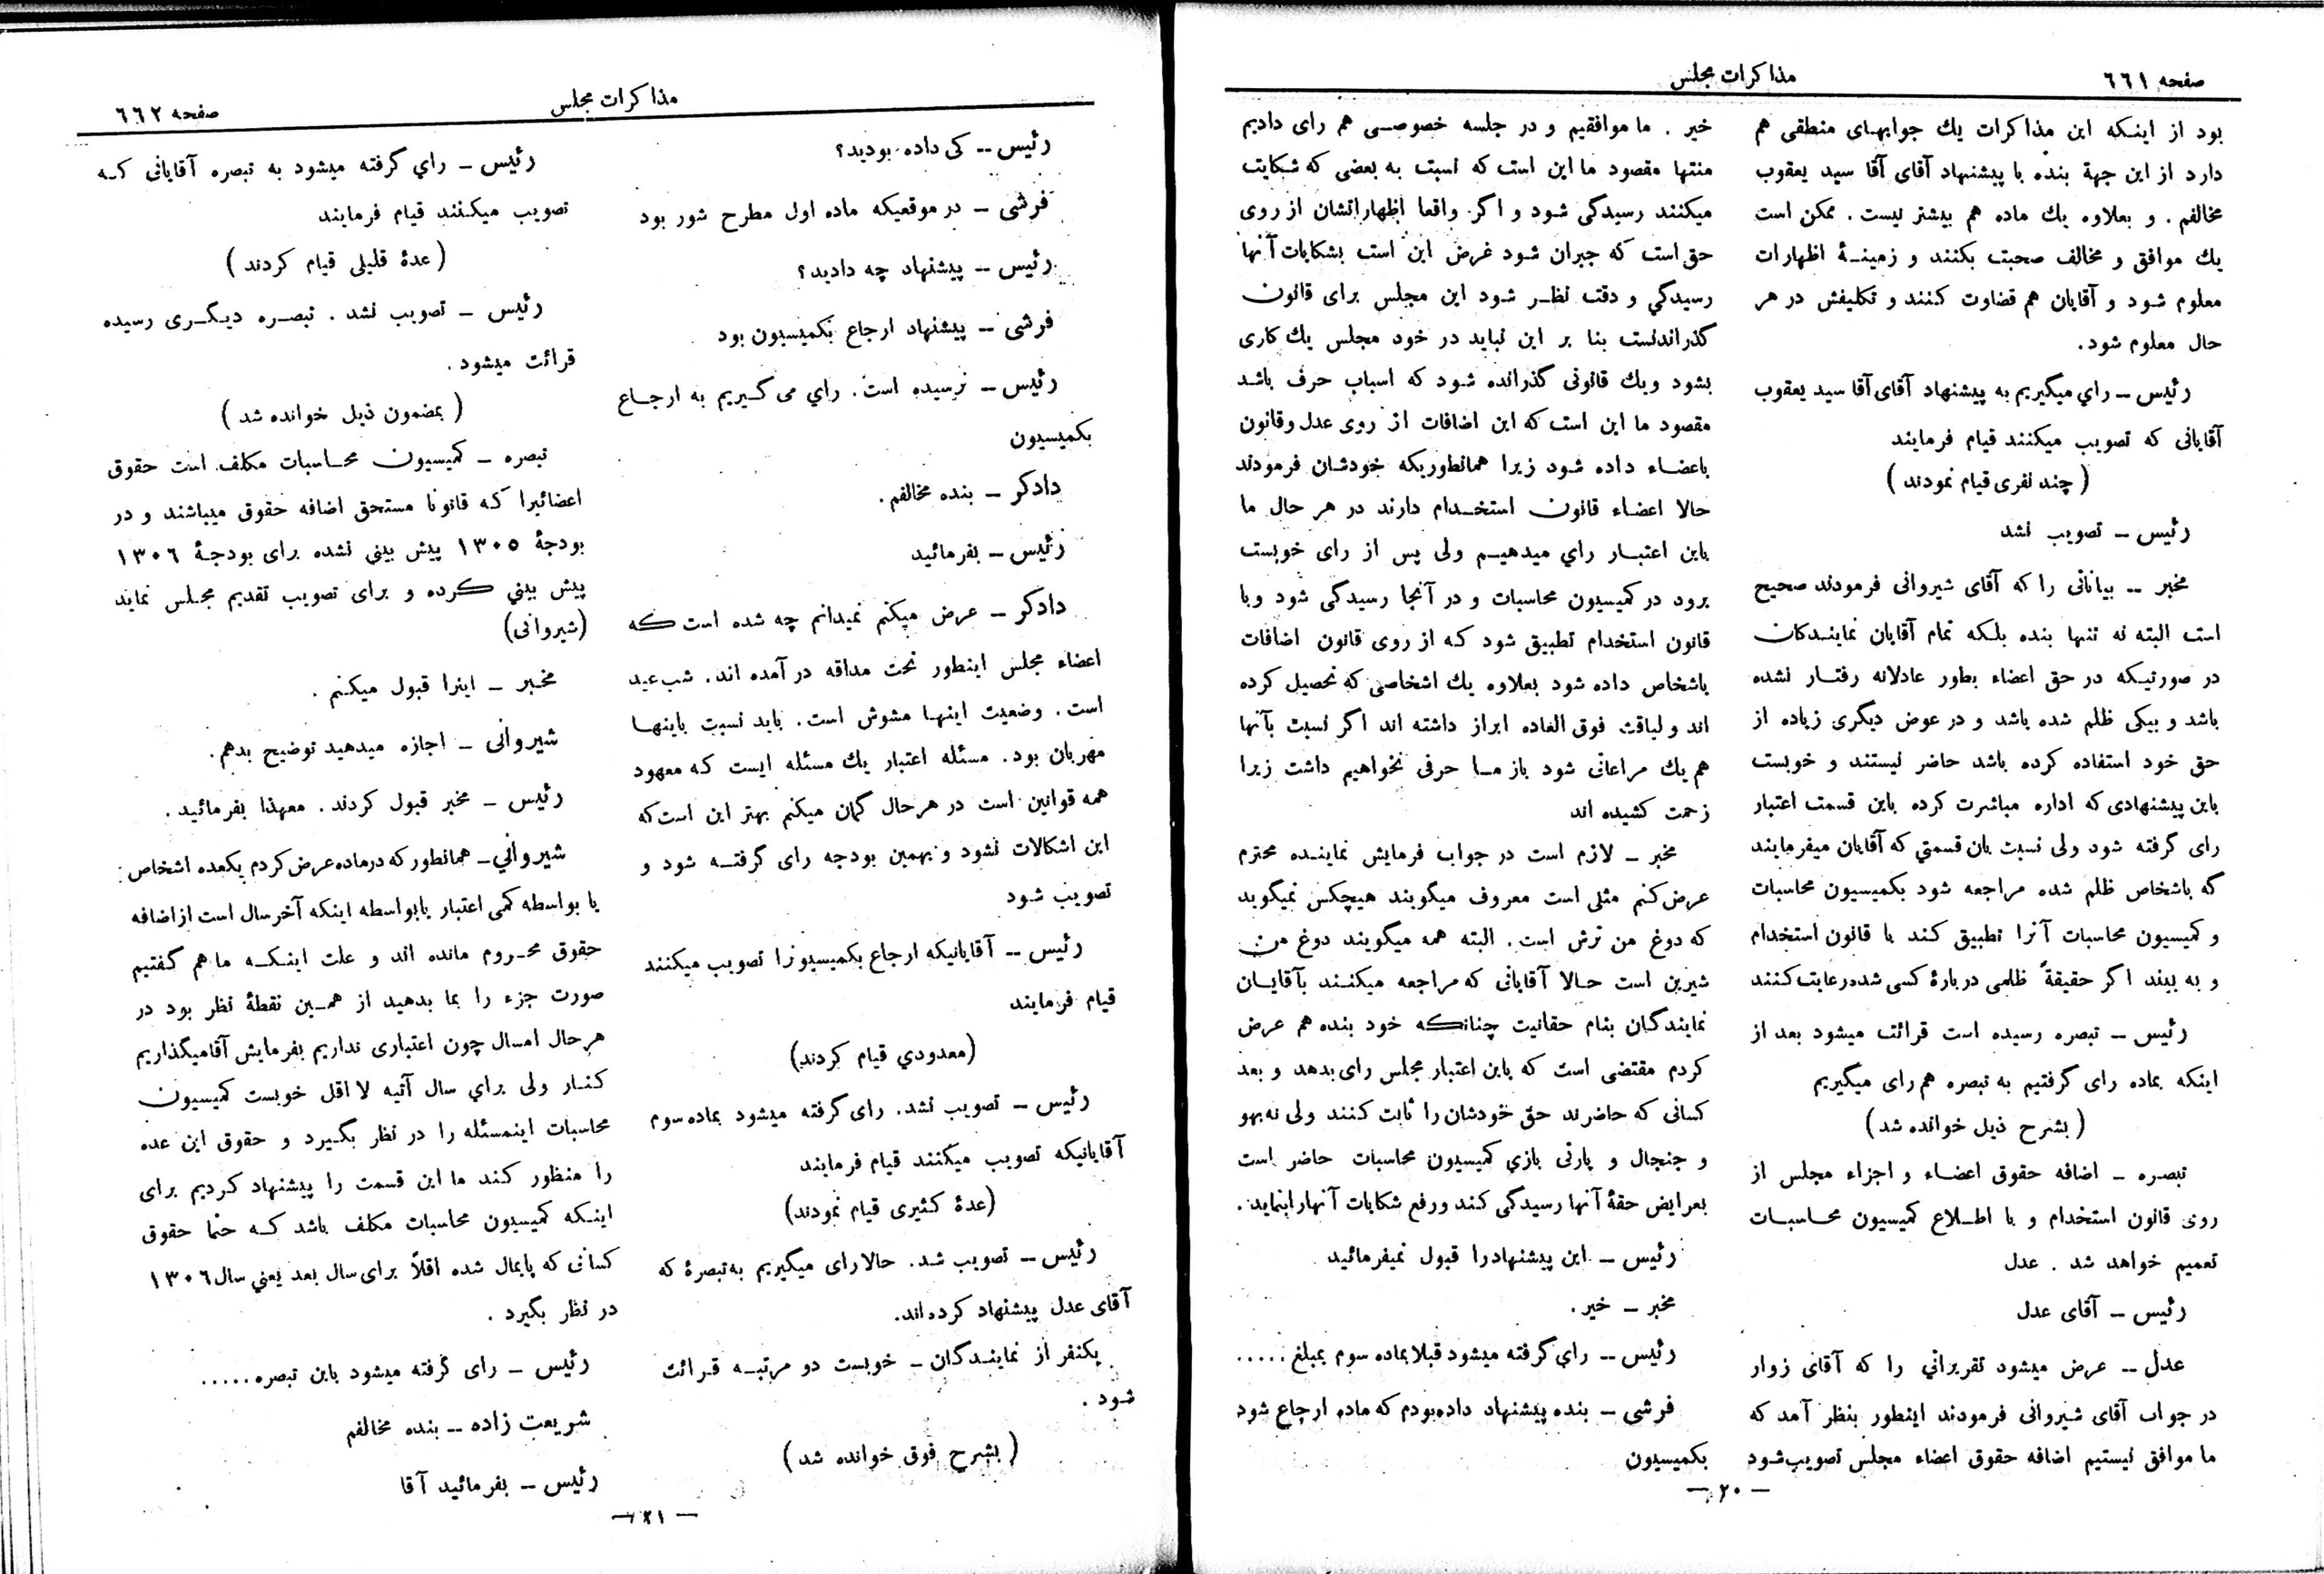 صفحه ٦٦١
مذاکرات مجلس
بود از اینکه این مذاکرات یك جوابهای منطقی هم
دارد از این جهة بنده با پیشنهاد آقای آقا سید یعقوب
مخالفم . و بعلاوه یك ماده هم بیشتر نیست . ممکن است
یك موافق و مخالف صحبت بکنند و زمینۀ اظهارات
معلوم شود و آقایان هم قضاوت کنند و تکلیفش در هر
حال معلوم شود .
رئیس ــ رأي میگیریم به پیشنهاد آقای آقا سید یعقوب
آقایانی که تصویب میکنند قیام فرمایند
( چند نفری قیام نمودند )
رئیس ــ تصویب نشد
مخبر ــ بیاناتی را که آقای شیروانی فرمودند صحیح
است البته نه تنها بنده بلکه تمام آقایان نمایندکان
در صورتیکه در حق اعضاء بطور عادلانه رفتار نشده
باشد و بیکی ظلم شده باشد و در عوض دیگری زیاده از
حق خود استفاده کرده باشد حاضر نیستند و خوبست
باین پیشنهادی که اداره مباشرت کرده باین قسمت اعتبار
رای گرفته شود ولی نسبت بان قسمتي که آقایان میفرمایند
که باشخاص ظلم شده مراجعه شود بکمیسیون محاسبات
و کمیسیون محاسبات آنرا تطبیق کند با قانون استخدام
و به بیند اگر حقیقةً ظلمی دربارۀ کسی شده رعایت کنند
رئیس ــ تبصره رسیده است قرائت میشود بعد از
اینکه بماده رای گرفتیم به تبصره هم رای میگیریم
( بشرح ذیل خوانده شد )
تبصره ــ اضافه حقوق اعضاء و اجزاء مجلس از
روی قانون استخدام و با اطلاع کمیسیون محاسبات
تعمیم خواهد شد . عدل
رئیس ــ آقای عدل
عدل ــ عرض میشود تقریراتي را که آقای زوار
در جواب آقای شیروانی فرمودند اینطور بنظر آمد که
ما موافق نیستیم اضافه حقوق اعضاء مجلس تصویب شود
خیر . ما موافقیم و در جلسه خصوصی هم رای دادیم
منتها مقصود ما این است که نسبت به بعضی که شکایت
میکنند رسیدگی شود و اگر واقعا اظهاراتشان از روی
حق است که جبران شود غرض این است بشکایات آنها
رسیدگي و دقت نظر شود این مجلس برای قانون
گذراندنست بنا بر این نباید در خود مجلس یك کاری
بشود ویك قانونی گذرانده شود که اسباب حرف باشد
مقصود ما این است که این اضافات از روی عدل وقانون
باعضاء داده شود زیرا همانطوریکه خودشان فرمودند
حالا اعضاء قانون استخدام دارند در هر حال ما
باین اعتبار رأي میدهیم ولی پس از رای خوبست
برود در کمیسیون محاسبات و در آنجا رسیدگی شود وبا
قانون استخدام تطبیق شود که از روی قانون اضافات
باشخاص داده شود بعلاوه یك اشخاصی که تحصیل کرده
اند و لیاقت فوق العاده ابراز داشته اند اگر نسبت بآنها
هم یك مراعاتی شود باز ما حرفی نخواهیم داشت زیرا
زحمت کشیده اند
مخبر ــ لازم است در جواب فرمایش نماینده محترم
عرض کنم مثلی است معروف میگویند هیچکس نمیگوید
که دوغ من ترش است . البته همه میگویند دوغ من
شیرین است حالا آقایانی که مراجعه میکنند بآقایان
نمایندگان بنام حقانیت چنانکه خود بنده هم عرض
کردم مقتضی است که باین اعتبار مجلس رای بدهد و بعد
کسانی که حاضرند حق خودشان را ثابت کنند ولی نه بهو
و جنجال و پارتی بازي کمیسیون محاسبات حاضر است
بعرایض حقۀ آنها رسیدگی کند ورفع شکایات آنهارا بنماید .
رئیس ــ این پیشنهاد را قبول نمیفرمائید
مخبر ــ خیر .
رئیس ــ رأي گرفته میشود قبلا بماده سوم بمبلغ .....
فرشی ــ بنده پیشنهاد داده بودم که ماده ارجاع شود
بکمیسیون
ــ ٢٠ ــ
مذاکرات مجلس
صفحه ٦٦٢
رئیس ــ کی داده بودید؟
فرشی ــ در موقعیکه ماده اول مطرح شور بود
رئیس ــ پیشنهاد چه دادید؟
فرشی ــ پیشنهاد ارجاع بکمیسیون بود
رئیس ــ نرسیده است . رأي می گیریم به ارجاع
بکمیسیون
دادگر ــ بنده مخالفم .
رئیس ــ بفرمائید
دادگر ــ عرض میکنم نمیدانم چه شده است که
اعضاء مجلس اینطور تحت مداقه در آمده اند . شب عید
است . وضعیت اینها مشوش است . باید نسبت باینها
مهربان بود . مسئله اعتبار یك مسئله ایست که معهود
همه قوانین است در هر حال گمان میکنم بهتر این است که
این اشکالات نشود و بهمین بودجه رای گرفته شود و
تصویب شود
رئیس ــ آقایانیکه ارجاع بکمیسیونرا تصویب میکنند
قیام فرمایند
(معدودي قیام کردند)
رئیس ــ تصویب نشد . رای گرفته میشود بماده سوم
آقایانیکه تصویب میکنند قیام فرمایند
(عدۀ کثیری قیام نمودند)
رئیس ــ تصویب شد . حالا رای میگیریم به تبصرۀ که
آقای عدل پیشنهاد کرده اند .
یکنفر از نمایندگان ــ خوبست دو مرتبه قرائت
شود .
( بشرح فوق خوانده شد )
رئیس ــ رأي گرفته میشود به تبصره آقایانی که
تصویب میکنند قیام فرمایند
( عدۀ قلیلی قیام کردند )
رئیس ــ تصویب نشد . تبصره دیگری رسیده
قرائت میشود .
( بمضمون ذیل خوانده شد )
تبصره ــ کمیسیون محاسبات مکلف است حقوق
اعضائیرا که قانونا مستحق اضافه حقوق میباشند و در
بودجۀ ١٣٠٥ پیش بیني نشده برای بودجۀ ١٣٠٦
پیش بیني کرده و برای تصویب تقدیم مجلس نماید
(شیروانی)
مخبر ــ اینرا قبول میکنم .
شیروانی ــ اجازه میدهید توضیح بدهم .
رئیس ــ مخبر قبول کردند . معهذا بفرمائید .
شیرواني ــ همانطور که در ماده عرض کردم یکعده اشخاص
یا بواسطه کمی اعتبار یا بواسطه اینکه آخر سال است از اضافه
حقوق محروم مانده اند و علت اینکه ما هم گفتیم
صورت جزء را بما بدهید از همین نقطۀ نظر بود در
هر حال امسال چون اعتباری نداریم بفرمایش آقا میگذاریم
کنار ولی برای سال آتیه لا اقل خوبست کمیسیون
محاسبات اینمسئله را در نظر بگیرد و حقوق این عده
را منظور کند ما این قسمت را پیشنهاد کردیم برای
اینکه کمیسیون محاسبات مکلف باشد که حتما حقوق
کسانی که پایمال شده اقلاً برای سال بعد یعني سال ١٣٠٦
در نظر بگیرد .
رئیس ــ رای گرفته میشود باین تبصره .....
شریعت زاده ــ بنده مخالفم
رئیس ــ بفرمائید آقا
ــ ٢١ ــ